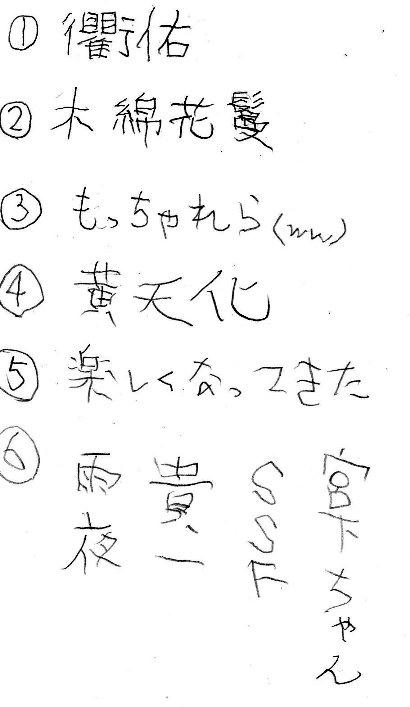 ① 衢佑
② 木綿花鬘
③ もっちゃれら(ww)
④ 黄天化
⑤ 楽しくなってきた
⑥
宮下ちゃん
SSF
貴一
雨夜